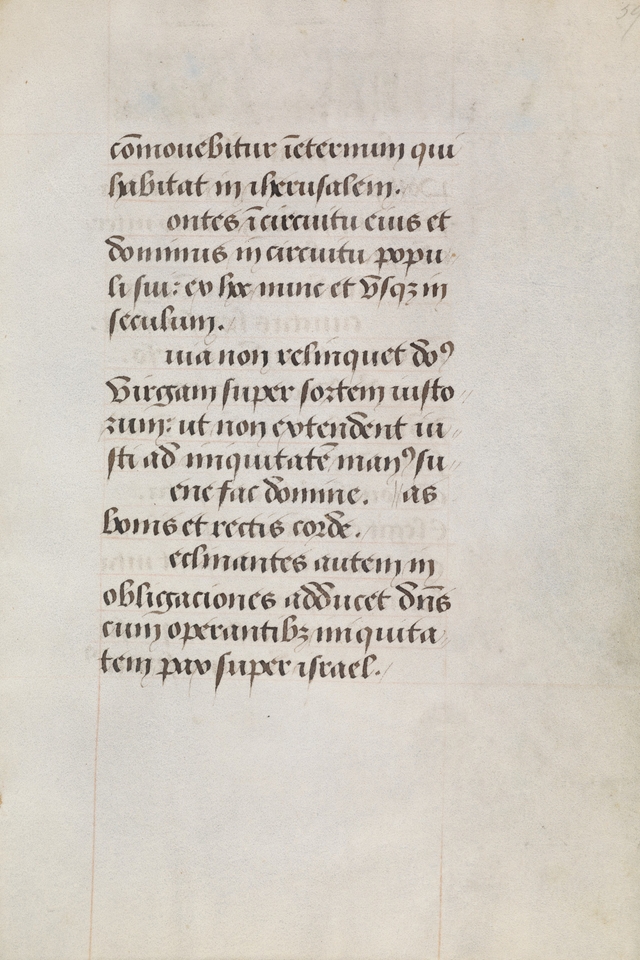 59
cōmouebitur īeternum qui
habitat in iherusalem.
ontes ī circuitu eius et
dominus in circuitu popu
li sui: ex hoc nunc et vsqꝫ in
seculum.
uia non relinquet doꝰ
virgam super sortem iusto
rum: ut non extendent iu
sti ad iniquitatē manꝰ su
enefac domine. as
bonis et rectis corde.
eclinantes autem in
obligaciones adducet dn̄s
cum operantibꝫ iniquita
tem pax super israel.